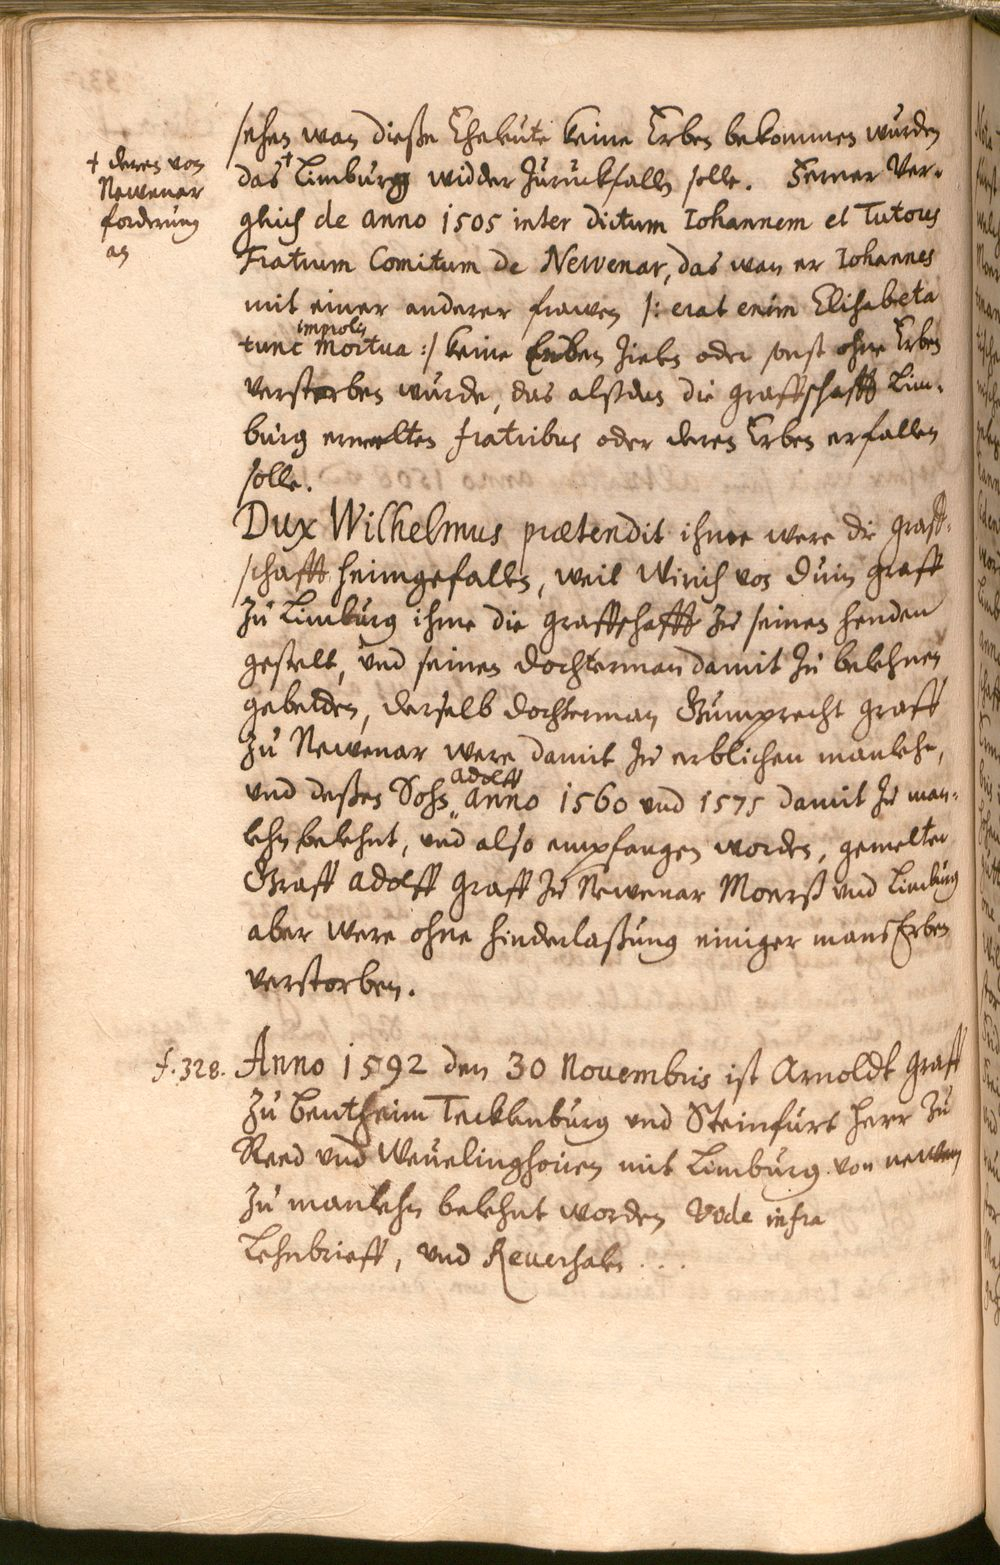 sehen wan dieße Eheleute keine Erben bekommen wurden
† deren von
Newenar
forderung
an
das † Limburg widder zuruckfallen solle. Ferner Ver-
gleich de anno 1505 inter dictum Iohannem et Tutores
Fratrum Comitum de Newenar, das wan er Iohannes
mit einer anderer frawen /: erat enim Elisabeta
improlis
tunc mortua :/ keine Erben zielen oder sonst ohne Erben
versterben wurde, das alßdan die graffschafft Lim-
burg ermelten fratribus oder deren Erben erfallen
solle.
Dux Wilhelmus prætendit ihme were die graff-
schafft heimgefallen, weil Wirich von Duin graff
zu Limburg ihme die graffschafft zu seinen henden
gestelt, und seinen dochterman damit zu belehnen
gebetten, derselb dochterman Gumprecht graff
zu Newenar were damit zu erblichen manlehn,
adolff
und deßen Sohn anno 1560 und 1575 damit zu man-
lehn belehnt, und also empfangen worden, gemelter
Graff adolff graff zu Newenar Moerß und Limburg
aber were ohne hinderlaßung einiger mans Erben
verstorben.
f. 328. Anno 1592 den 30 Novembris ist Arnoldt graff
zu Bentheim Tecklenburg und Steinfurt herr zu
Reed und Wevelinghoven mit Limburg von newem
zu manlehn belehnt worden Vide infra
Lehnbrieff, und Reversalen ...